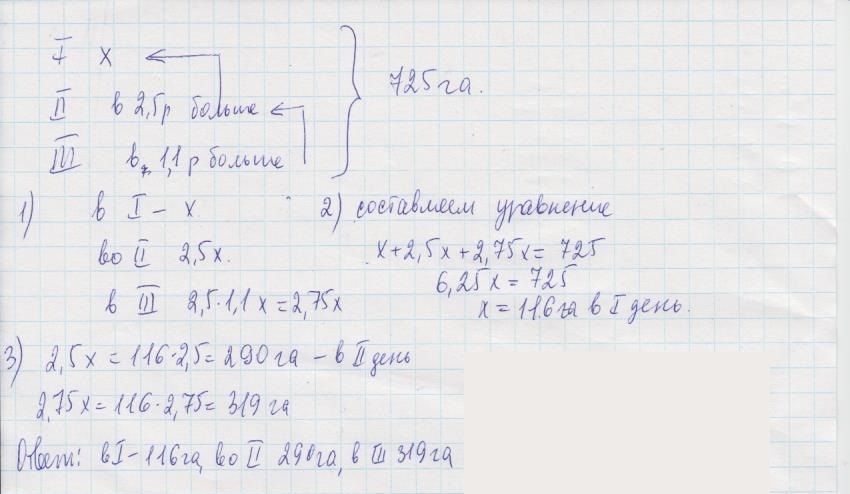 I х
II в 2,5 р больше
III в 1,1 р больше
725 га.
1) в I – х
во II 2,5х.
в III 2,5·1,1х = 2,75х
2) составляем уравнение
х+2,5х+2,75х = 725
6,25х = 725
х = 116 га в I день.
3) 2,5х = 116·2,5 = 290 га – в II день
2,75х = 116·2,75 = 319 га
Ответ: в I – 116 га, во II 290 га, в III 319 га